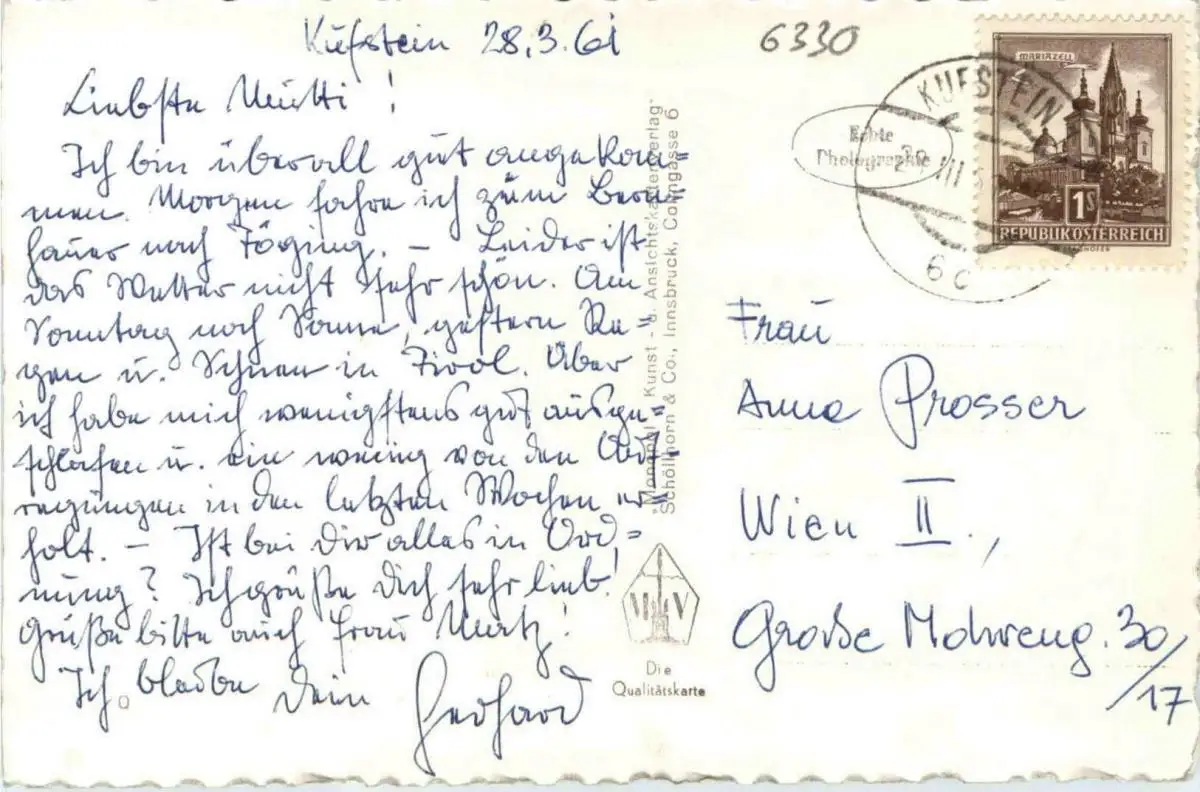 Kufstein 28.3.61
6330
Liebste Mutti!
Ich bin überall gut angekom=
men. Morgen fahre ich zum
hauer nach Töging. — Leider ist
das Wetter nicht sehr schön. Am
Sonntag noch Sonne, gestern Re=
gen u. Schnee in Tirol. Aber
ich habe mich wenigstens gut ausge=
schlafen u. ein wenig von den Auf=
regungen in den letzten Wochen er=
holt. — Ist bei Dir alles in Ord=
nung? Ich grüße Dich sehr lieb!
Grüße bitte auch Frau
Ich bleibe Dein Gerhard
"Mondial" Kunst- u. Ansichtskartenverlag
Schöllhorn & Co., Innsbruck, Colingasse 6
MKV
Die
Qualitätskarte
Echte
Photographie
KUFSTEIN
III
6c
MARIAZELL
1S
REPUBLIK ÖSTERREICH
Frau
Anna Prosser
Wien II.,
Große Mohreng. 30/17